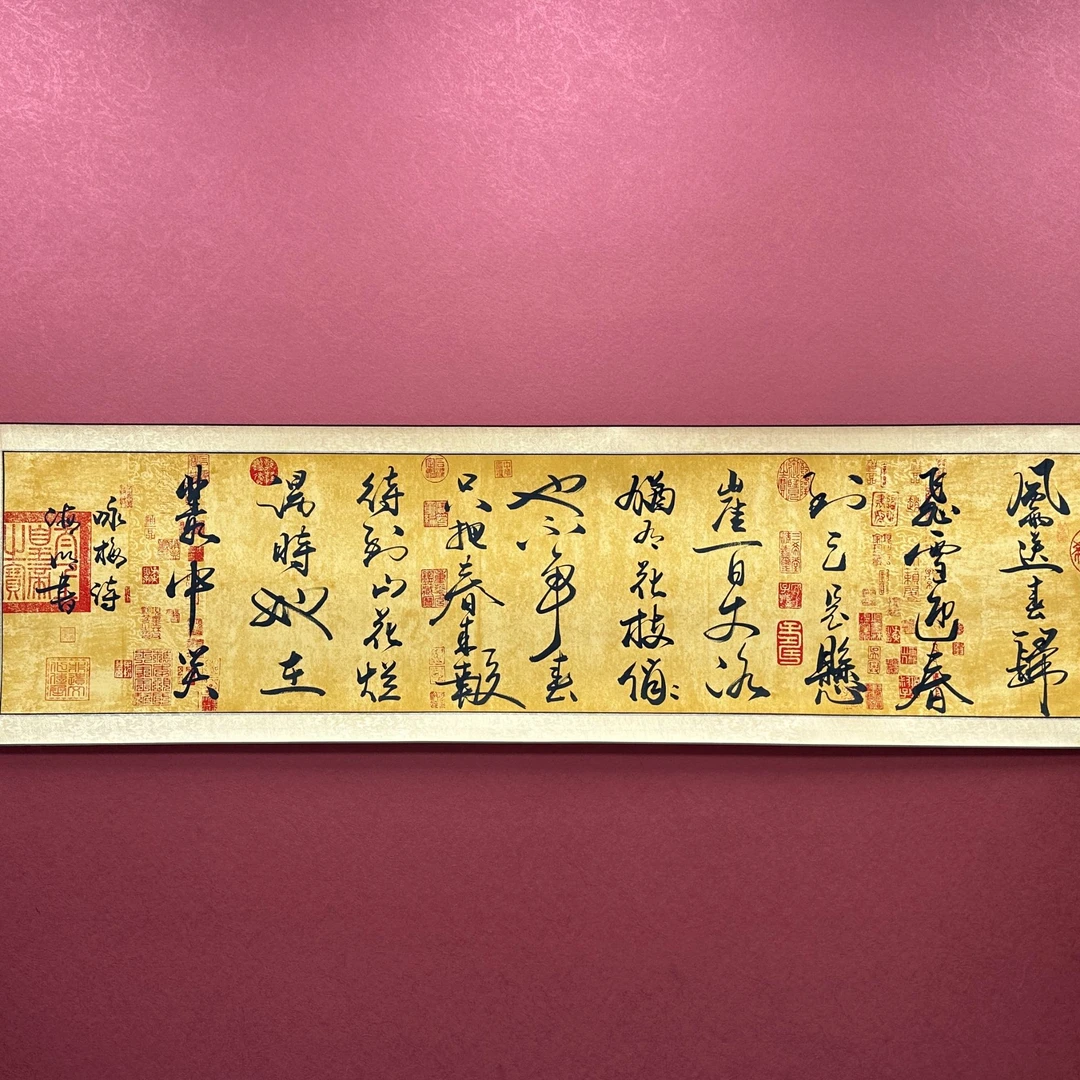 風雨送春歸
飛雪迎春
到已是懸
崖百丈冰
猶有花枝俏々
也不爭春
只把春來報
待到山花爛
漫時她在
叢中笑
咏梅詩
海明書